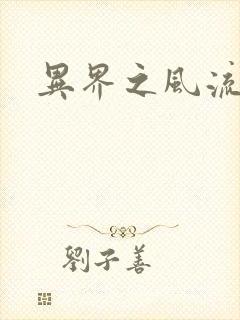 異界之風流
劉子善